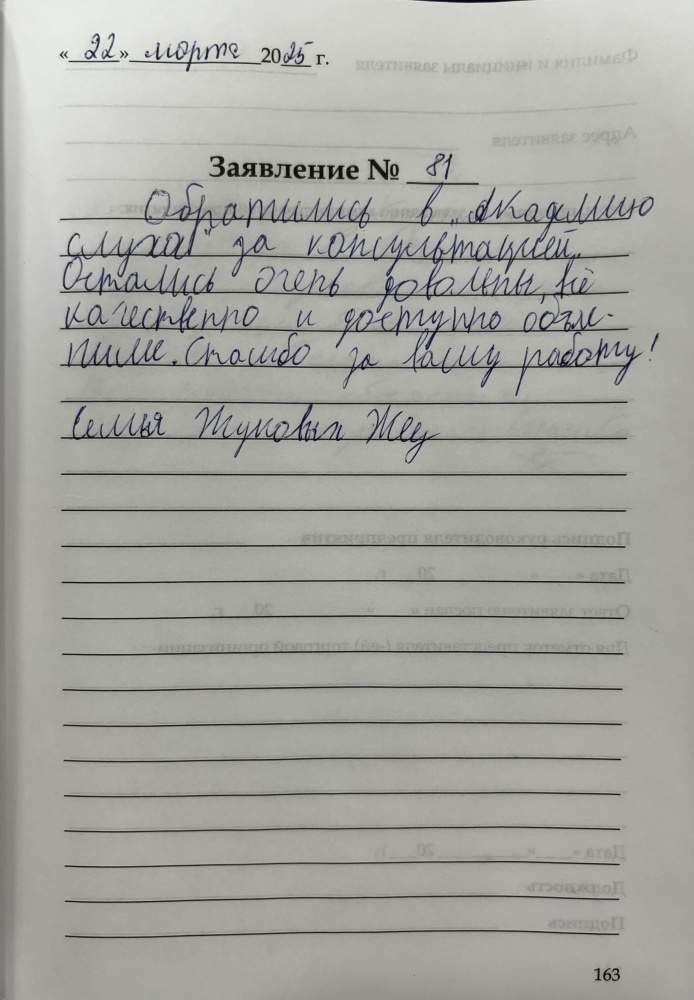 «22» марта 2025 г.
Заявление № 81
Обратились в "Академию
слуха" за консультацией.
Остались очень довольны, всё
качественно и доступно объяс-
нили. Спасибо за вашу работу!
Семья Жуковых
163